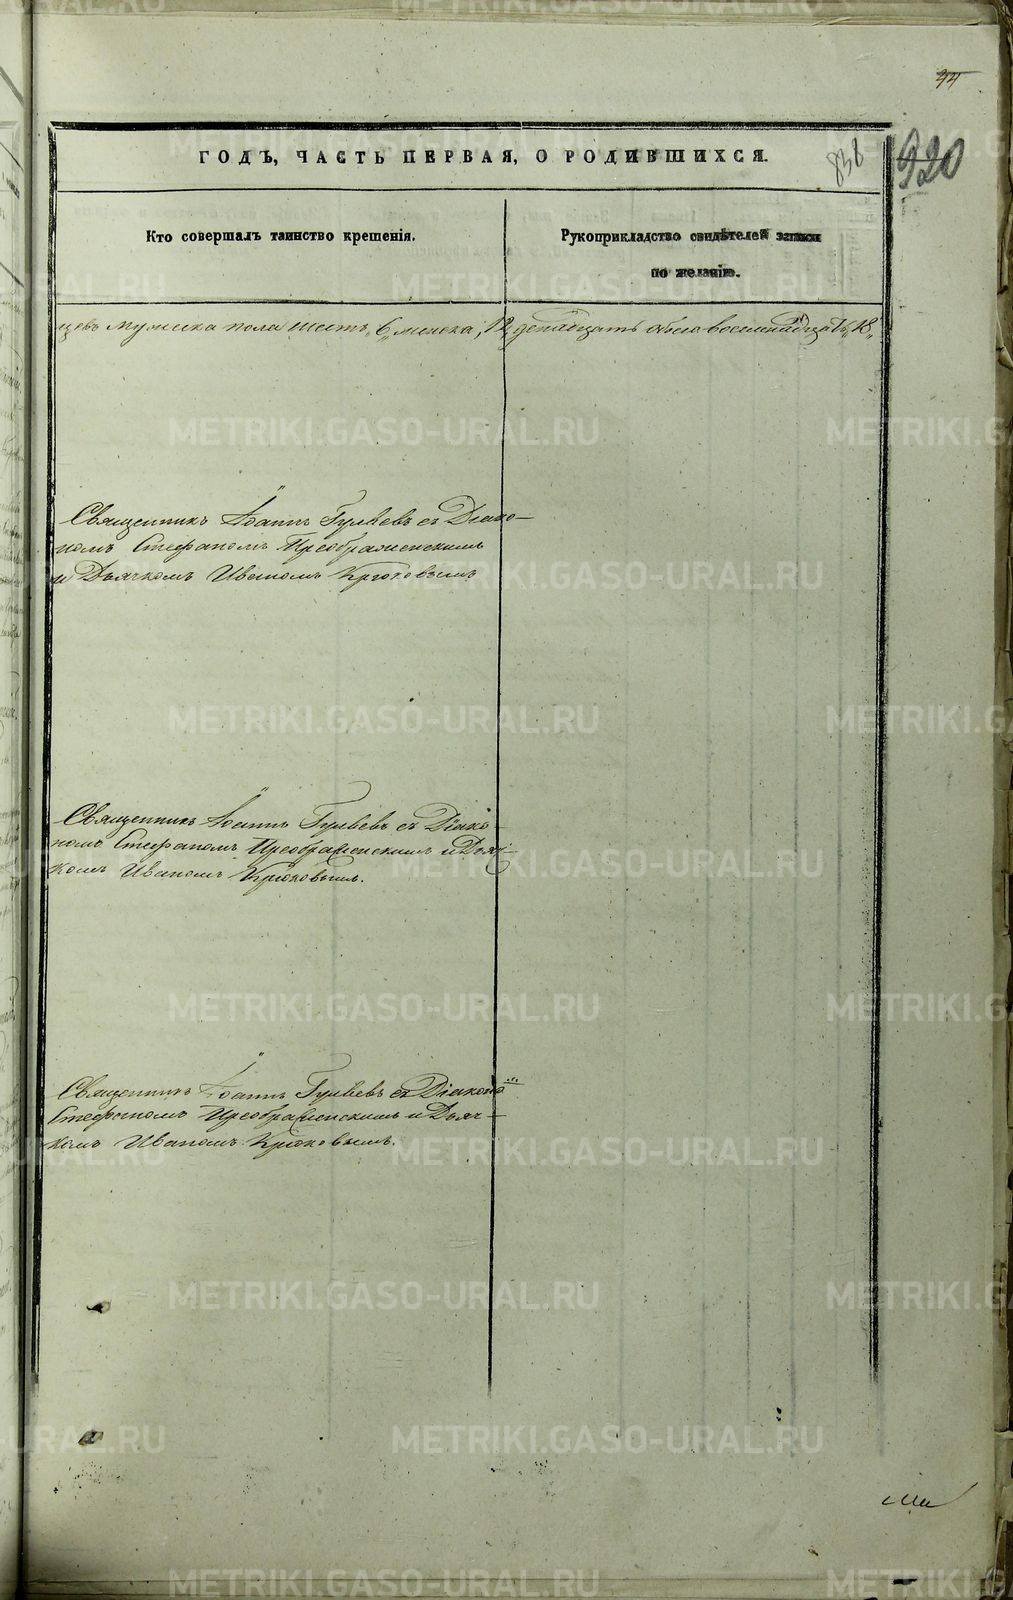 44
ГОДЪ, ЧАСТЬ ПЕРВАЯ, О РОДИВШИХСЯ.
838
920
Кто совершалъ таинство крещенія.
Рукоприкладство свидѣтелей записи
по желанію.
цевъ мужеска пола шесть „6„ женска „12„ двенадцать обоего восемнадцать „18„
Священникъ Іоаннъ Гуляевъ съ Діако-
номъ Стефаномъ Преображенскимъ
и Дьячкомъ Иваномъ Крюковымъ
Священникъ Іоаннъ Гуляевъ съ Діако-
номъ Стефаномъ Преображенскимъ и Дьяч-
комъ Иваномъ Крюковымъ.
Священникъ Іоаннъ Гуляевъ съ Діакономъ
Стефаномъ Преображенскимъ и Дьяч-
комъ Иваномъ Крюковымъ.
METRIKI.GASO-URAL.RU